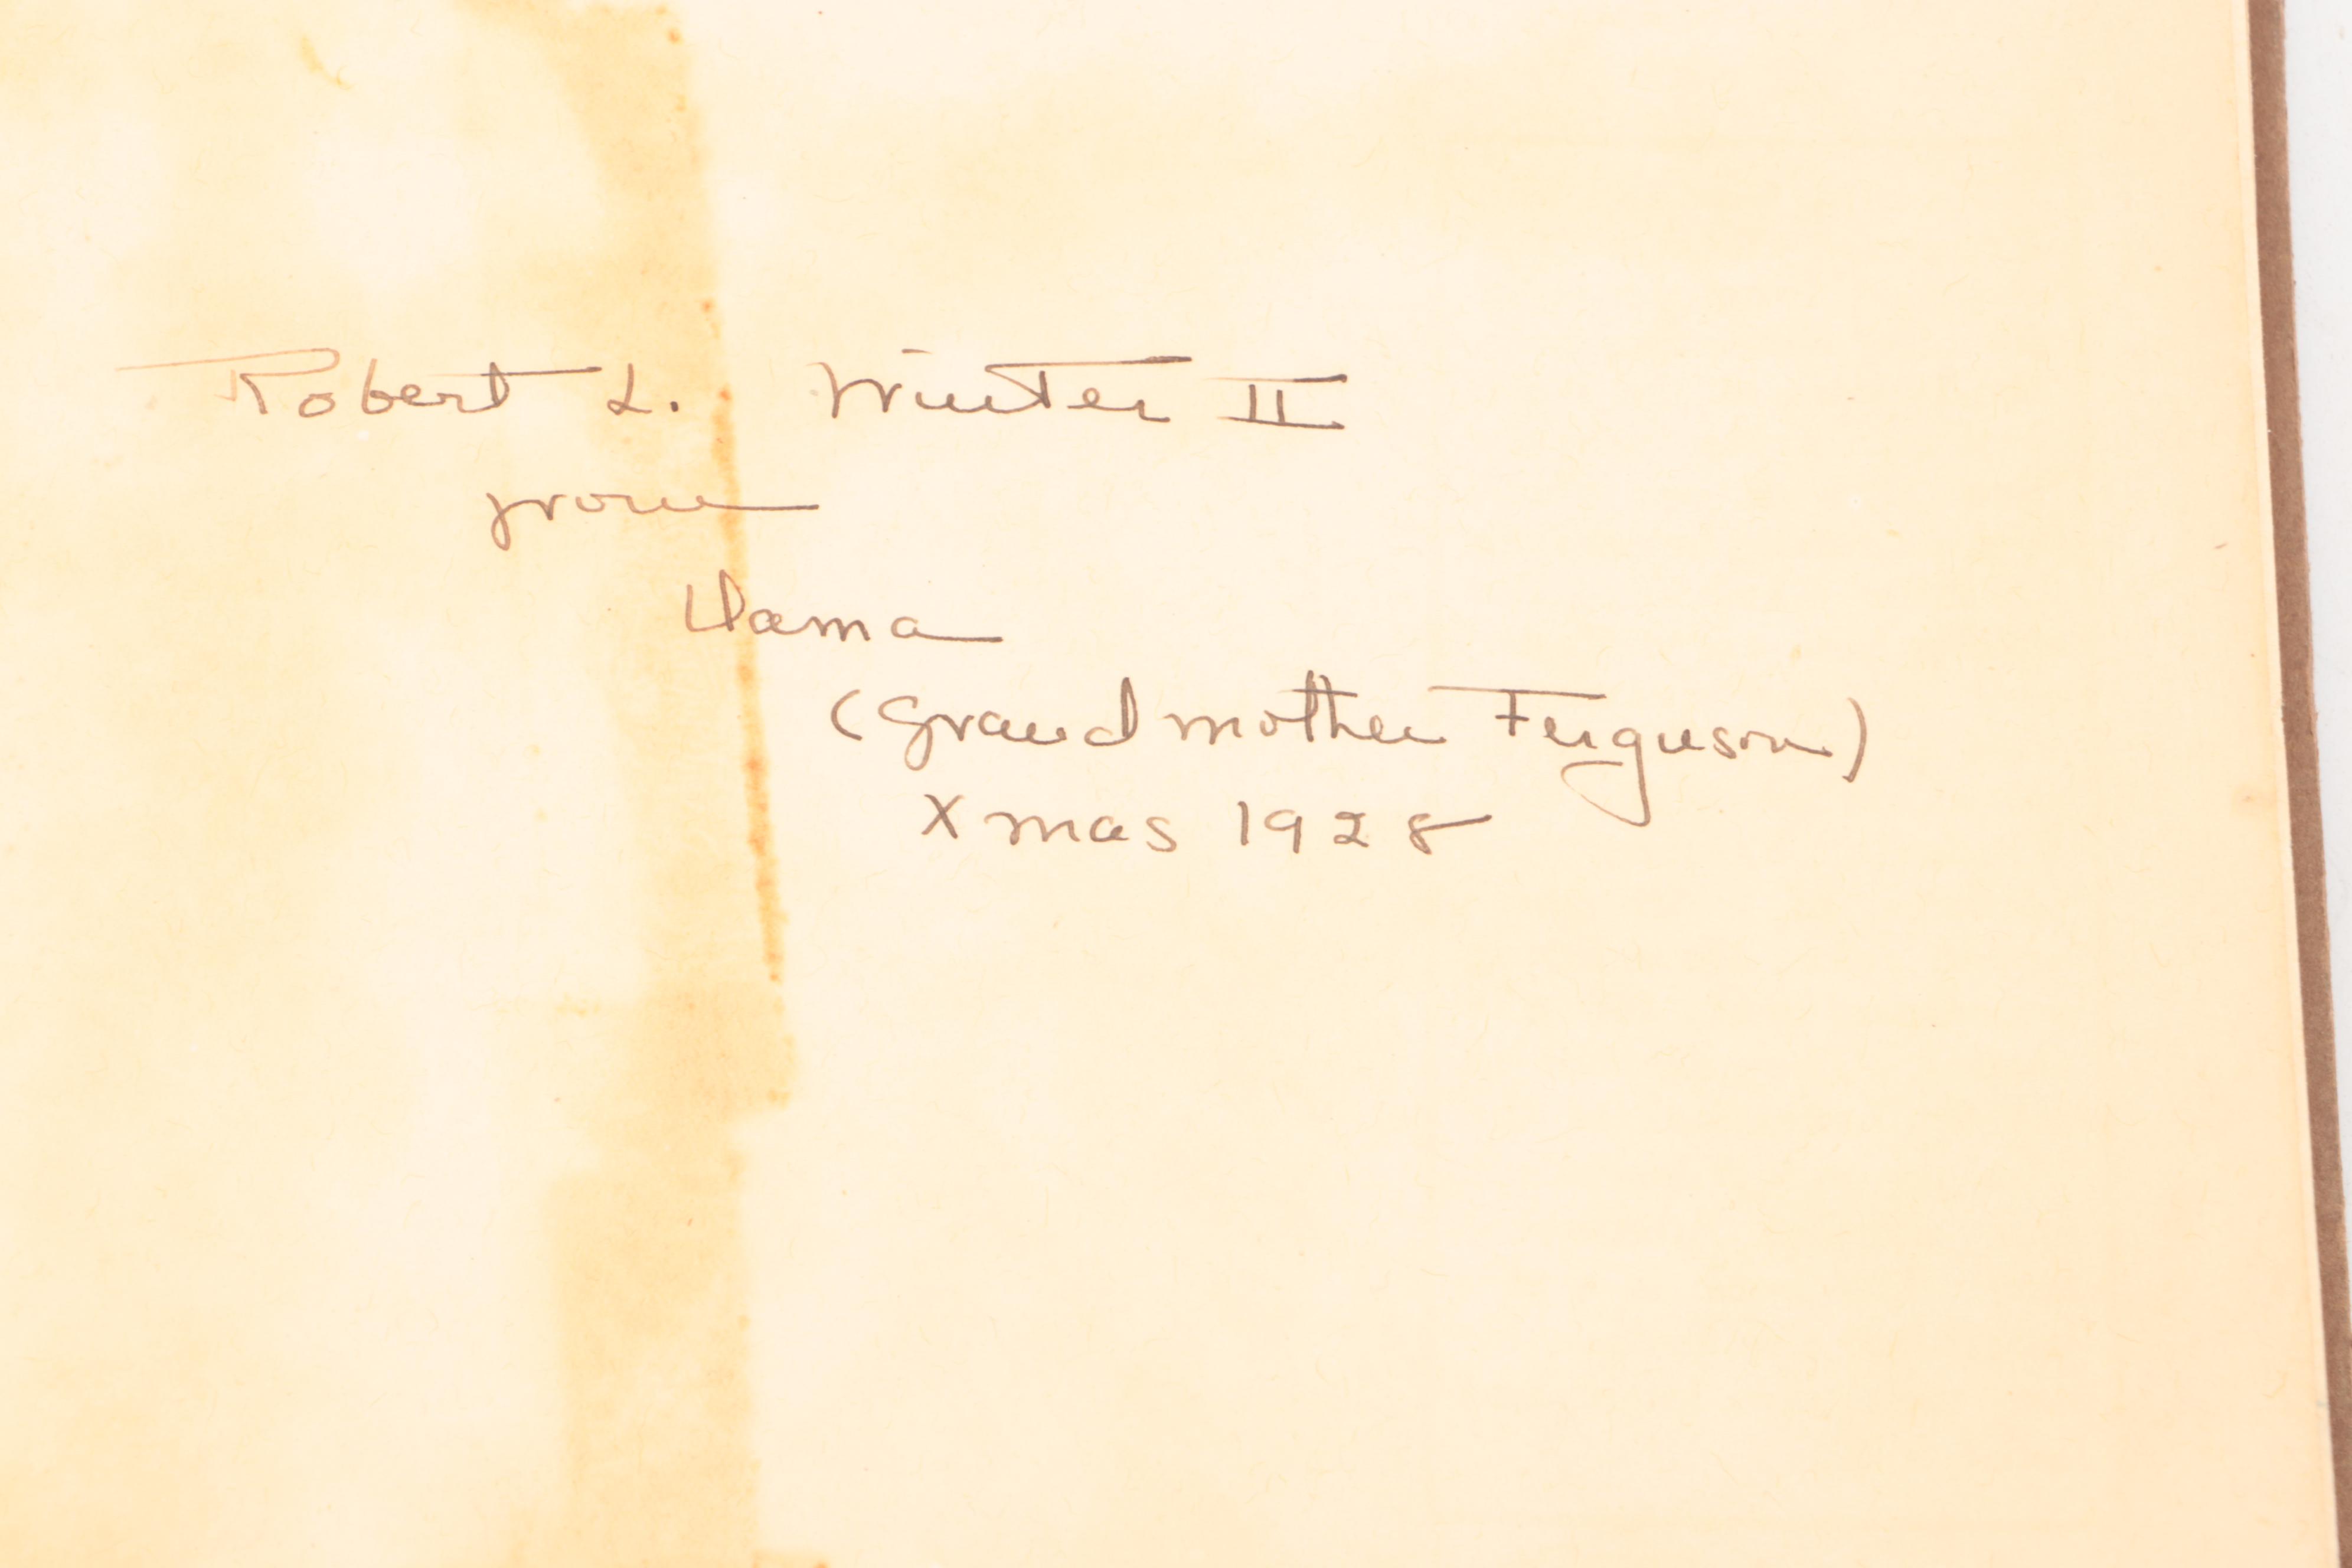 Robert L. Winter II
from
Dama
(Grandmother Ferguson)
Xmas 1928